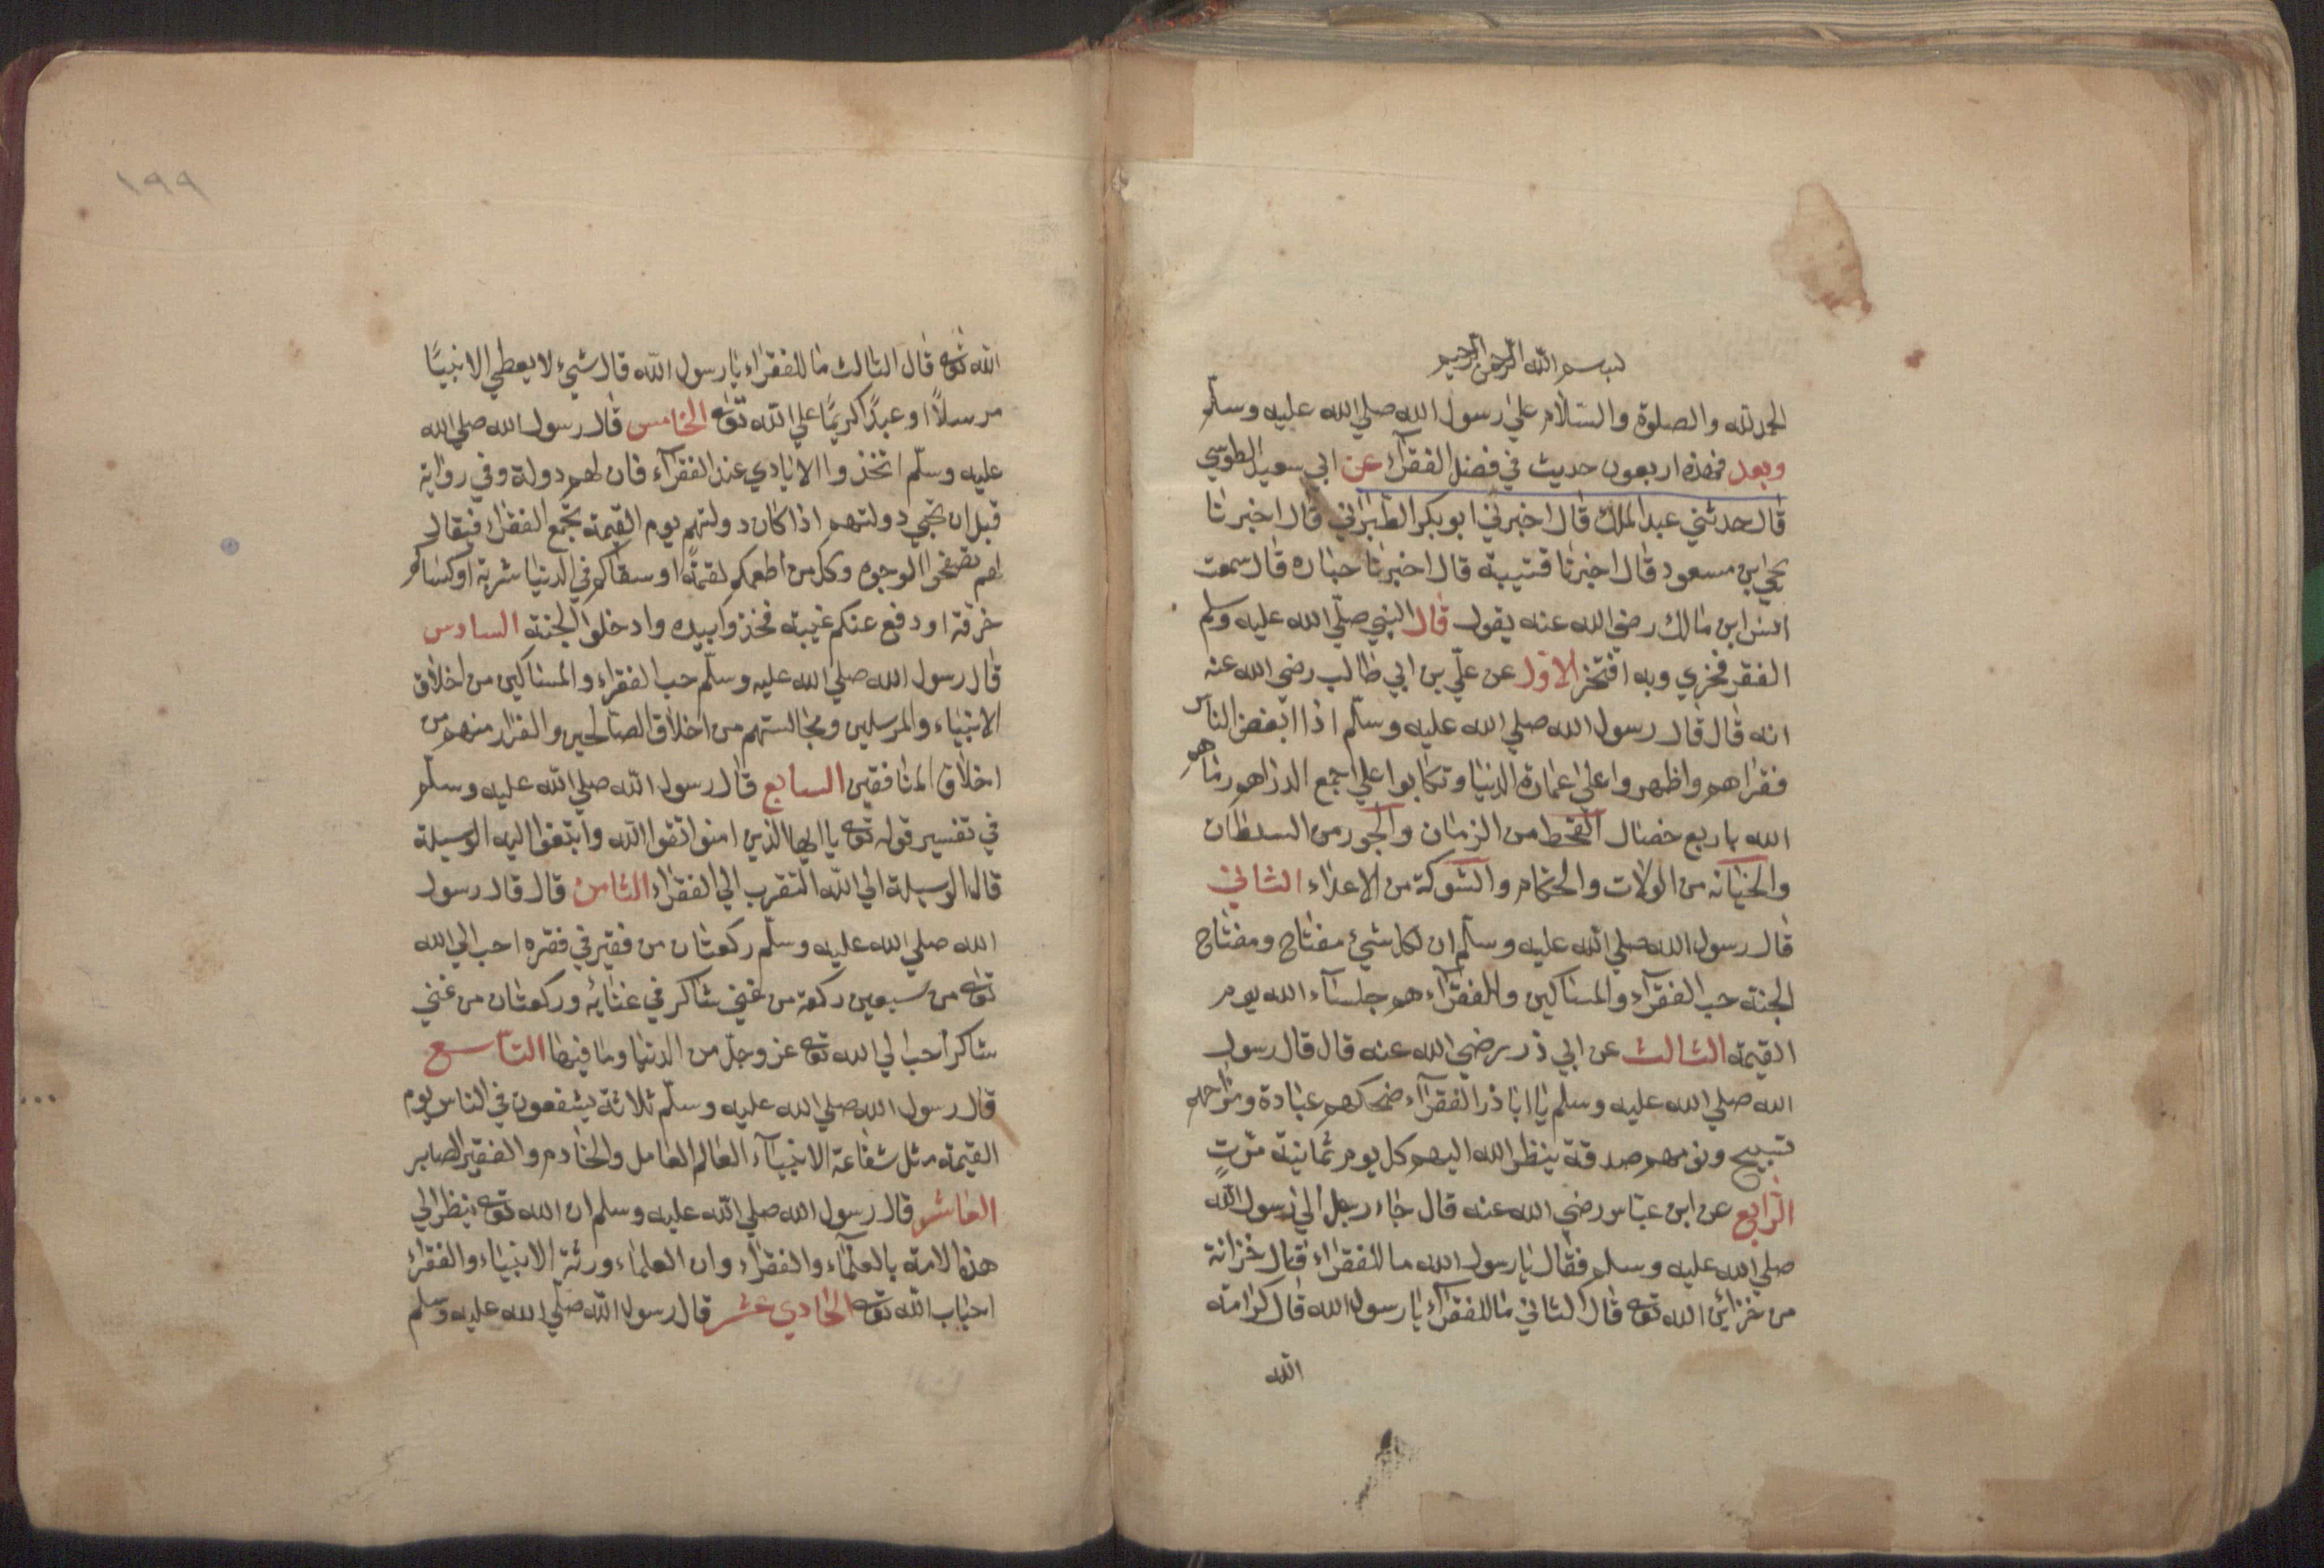 بسم الله الرحمن الرحيم
الحمد لله والصلوة والسّلام علي رسول الله صلي الله عليه وسلّم
وبعد فهذه اربعون حديث في فضل الفقرآء عن ابي سعيد الطوسي
قال حدثني عبد الملك قال اخبرني ابو بكر الطبراني قال اخبرنا
يحي ابن مسعود قال اخبرنا قتيبة قال اخبرنا حباره قال سمعت
انس ابن مالك رضي الله عنه يقول قال النبي صلّي الله عليه وسلم
الفقر فخري وبه افتخر الاوّل عن عليّ بن ابي طالب رضي الله عنه
انه قال قال رسول الله صلي الله عليه وسلّم اذا ابغض الناس
فقراهم واظهروا علي عمارة الدنيا وتكالبوا علي جمع الدراهم رماهم
الله باربع خصال القحط من الزمان والجور من السلطان
والخيانه من الولات والحكام والشوكة من الاعداء الثاني
قال رسول الله صلي الله عليه وسلّم ان لكل شيء مفتاح ومفتاح
الجنة حب الفقرآء والمساكين والفقرآء هم جلسآء الله يوم
القيمة الثالث عن ابي ذر رضي الله عنه قال قال رسول
الله صلي الله عليه وسلم يا اباذر الفقرآء ضحكهم عبادة ومزاحهم
تسبيح ونومهم صدقة ينظر الله اليهم كل يوم ثمانية مرّتٍ
الرّابع عن ابن عبّاس رضي الله عنه قال جاء رجل الي رسول الله
صلي الله عليه وسلم فقال يا رسول الله ما للفقراء قال خزانة
من خزائن الله تعه قال الثاني ما للفقرآء يا رسول الله قال كرامة
الله
١٩٩
الله تعه قال الثالث ما للفقراء يا رسول الله قال شيء لا يعطي الا نبيًا
مرسلاً او عبدًا كريمًا علي الله تعه الخامس قال رسول الله صلي الله
عليه وسلّم اتخذوا الايادي عند الفقرآء فان لهم دولة وفي رواية
قبل ان تجي دولتهم اذا كان دولتهم يوم القيمة تجمع الفقراء فيقال
لهم تصفحوا الوجوه وكل من اطعمكم لقمةً او سقاكم في الدنيا شربة او كساكم
خرقة او دفع عنكم غيبة فخذوا بيده وادخلوا الجنة السادس
قال رسول الله صلي الله عليه وسلّم حب الفقراء والمساكين من اخلاق
الانبياء والمرسلين ومجالستهم من اخلاق الصالحين والفرار منهم من
اخلاق المنافقين السابع قال رسول الله صلي الله عليه وسلّم
في تفسير قوله تعه يا ايها الذين امنوا اتقوا الله وابتغوا اليه الوسيلة
قال الوسيلة الي الله التقرب الي الفقراء الثامن قال قال رسول
الله صلي الله عليه وسلّم ركعتان من فقير في فقره احب الي الله
تعه من سبعين ركعة من غني شاكر في غنائه وركعتان من غني
شاكر احب الي الله تعه عز وجلّ من الدنيا وما فيها التاسع
قال رسول الله صلي الله عليه وسلّم ثلاثة يشفعون في الناس يوم
القيمة مثل شفاعة الانبيآء العالم العامل والخادم والفقير الصابر
العاشر قال رسول الله صلي الله عليه وسلم ان الله تعه ينظر الي
هذه الامة بالعلمآء والفقراء وان العلماء ورثة الانبياء والفقراء
احباب الله تعه الحادي عشر قال رسول الله صلّي الله عليه وسلم